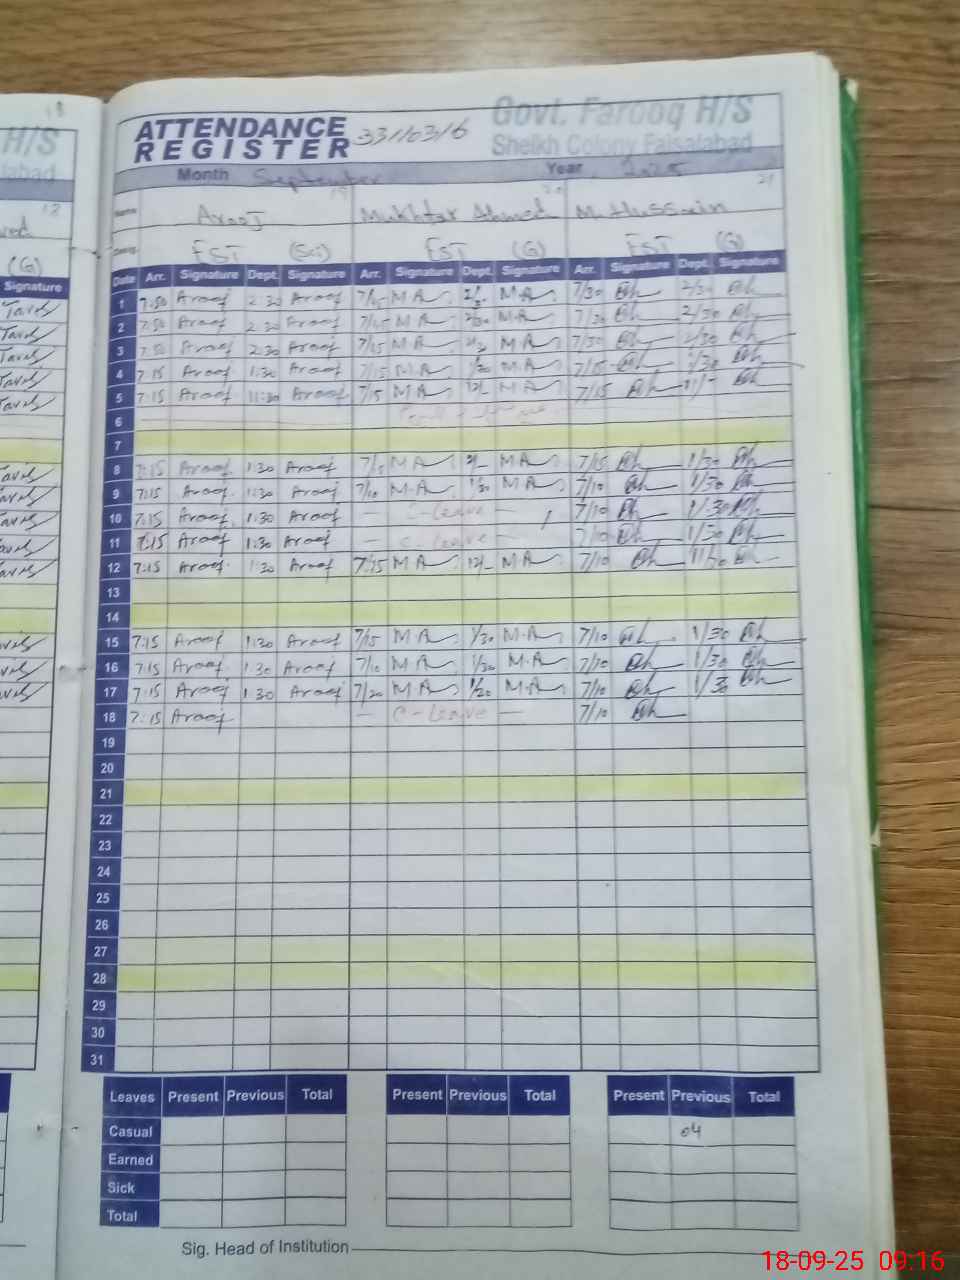 18
H/S
labad
18
(G)
Signature
ATTENDANCE
REGISTER
33110316
Govt. Farooq H/S
Sheikh Colony Faisalabad
Month September Year 2025
19 20 21
Name Arooj Mukhtar Ahmed M. Hussain
Desig. EST (Sci) EST (G) EST (G)
Date Arr. Signature Dept. Signature Arr. Signature Dept. Signature Arr. Signature Dept. Signature
1 7:50 Aroof 2:30 Aroof 7/15 M A M A 7/30 2/30
2 7:50 Aroof 2:30 Aroof 7/15 M A 2/30 M.A 7/30 2/30
3 7:50 Aroof 2:30 Aroof 7/15 M A M A 7/30 2/30
4 7:15 Aroof 1:30 Aroof 7/15 M.A 1/30 M A 7/15 1/30
5 7:15 Aroof 11:30 Aroof 7/15 M A 12/- M A 7/15
6
7
8 7:15 Aroof 1:30 Aroof M A M A 7/15 1/30
9 7:15 Aroof 1:30 Aroof 7/10 M.A 1/30 M A 7/10 1/30
10 7:15 Aroof 1:30 Aroof — C-Leave — 7/10 1/30
11 7:15 Aroof 1:30 Aroof — C-Leave — 7/10 1/30
12 7:15 Aroof 1:30 Aroof 7/15 M A 12/- M A 7/10
13
14
15 7:15 Aroof 1:30 Aroof 7/15 M A 1/30 M.A 7/10 1/30
16 7:15 Aroof 1:30 Aroof 7/10 M A 1/30 M.A 7/10 1/30
17 7:15 Aroof 1:30 Aroof 7/20 M A 1/20 M.A 7/10 1/30
18 7:15 Aroof — C-Leave — 7/10
19
20
21
22
23
24
25
26
27
28
29
30
31
Leaves Present Previous Total Present Previous Total Present Previous Total
Casual 04
Earned
Sick
Total
Sig. Head of Institution
18-09-25 09:16